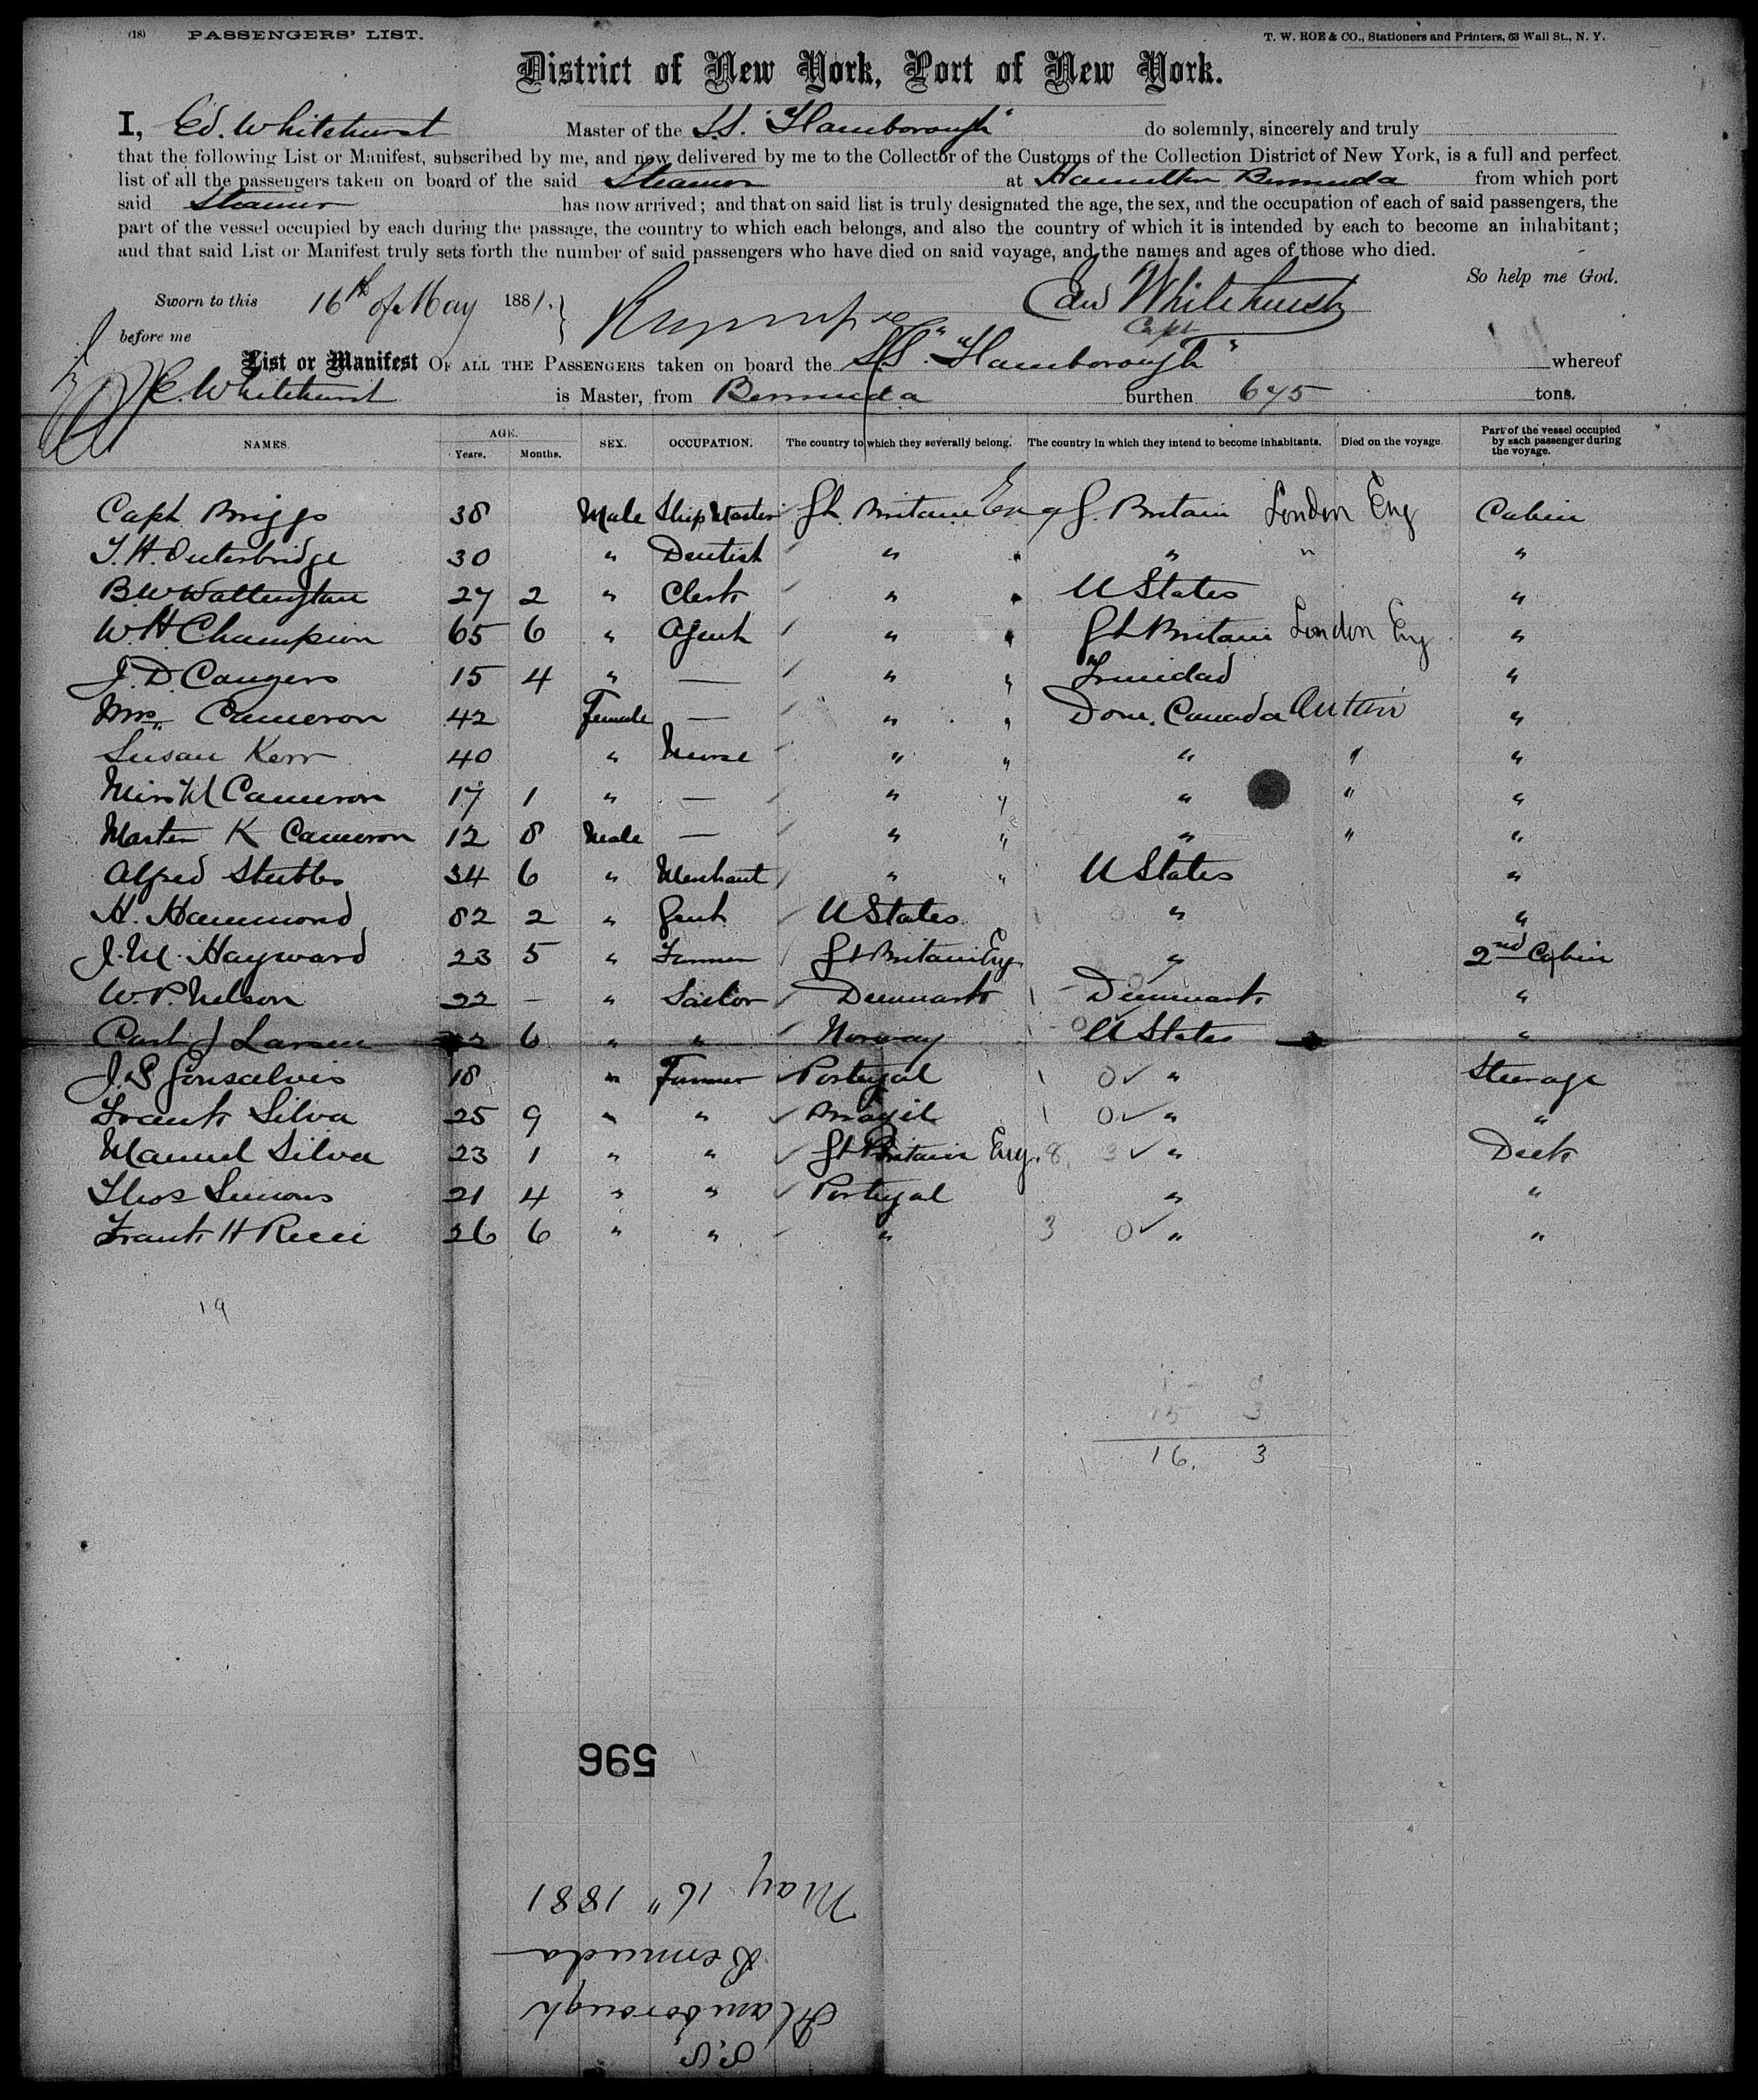 (18) PASSENGERS' LIST. T. W. ROE & CO., Stationers and Printers, 63 Wall St., N. Y.
District of New York, Port of New York.
I, Ed. Whitehurst Master of the S.S. "Flamborough" do solemnly, sincerely and truly
that the following List or Manifest, subscribed by me, and now delivered by me to the Collector of the Customs of the Collection District of New York, is a full and perfect
list of all the passengers taken on board of the said Steamer at Hamilton Bermuda from which port
said Steamer has now arrived; and that on said list is truly designated the age, the sex, and the occupation of each of said passengers, the
part of the vessel occupied by each during the passage, the country to which each belongs, and also the country of which it is intended by each to become an inhabitant;
and that said List or Manifest truly sets forth the number of said passengers who have died on said voyage, and the names and ages of those who died.
So help me God.
Sworn to this 16th of May 1881. Edw Whitehurst
before me Capt
List or Manifest OF ALL THE PASSENGERS taken on board the S.S. "Flamborough" whereof
E. Whitehurst is Master, from Bermuda burthen 675 tons.
NAMES. AGE. Years. Months. SEX. OCCUPATION. The country to which they severally belong. The country in which they intend to become inhabitants. Died on the voyage. Part of the vessel occupied by each passenger during the voyage.
Capt Briggs 38 Male Ship Master Gt. Britain Eng G. Britain London Eng Cabin
T. H. Outerbridge 30 " Dentist " " " " "
B. W. Watlington 27 2 " Clerk " " U States "
W. H. Champion 65 6 " Agent " " Gt Britain London Eng "
J. D. 15 4 " — " " Trinidad "
Mrs Cameron 42 Female — " " Dom. Canada "
Susan Kerr 40 " Nurse " " " " "
Miss M Cameron 17 1 " — " " " " "
Master K Cameron 12 8 Male — " " " " "
Alfred Stubbs 34 6 " Merchant " " U States "
H. Hammond 82 2 " Gent U States " "
J. M. Hayward 23 5 " Farmer Gt Britain Eng " 2nd Cabin
W. P. Nelson 22 — " Sailor Denmark Denmark "
Carl J Larsen 22 6 " " Norway U States "
J. S Gonsalves 18 " Farmer Portugal " Steerage
Frank Silva 25 9 " " Brazil " "
Manuel Silva 23 1 " " Gt Britain Eng. 8 3 " Deck
Thos Simons 21 4 " " Portugal " "
Frank H Ricci 26 6 " " " 3 0 " "
19
15 3
16. 3
596
May 16" 1881
Bermuda
Flamborough
S.S.